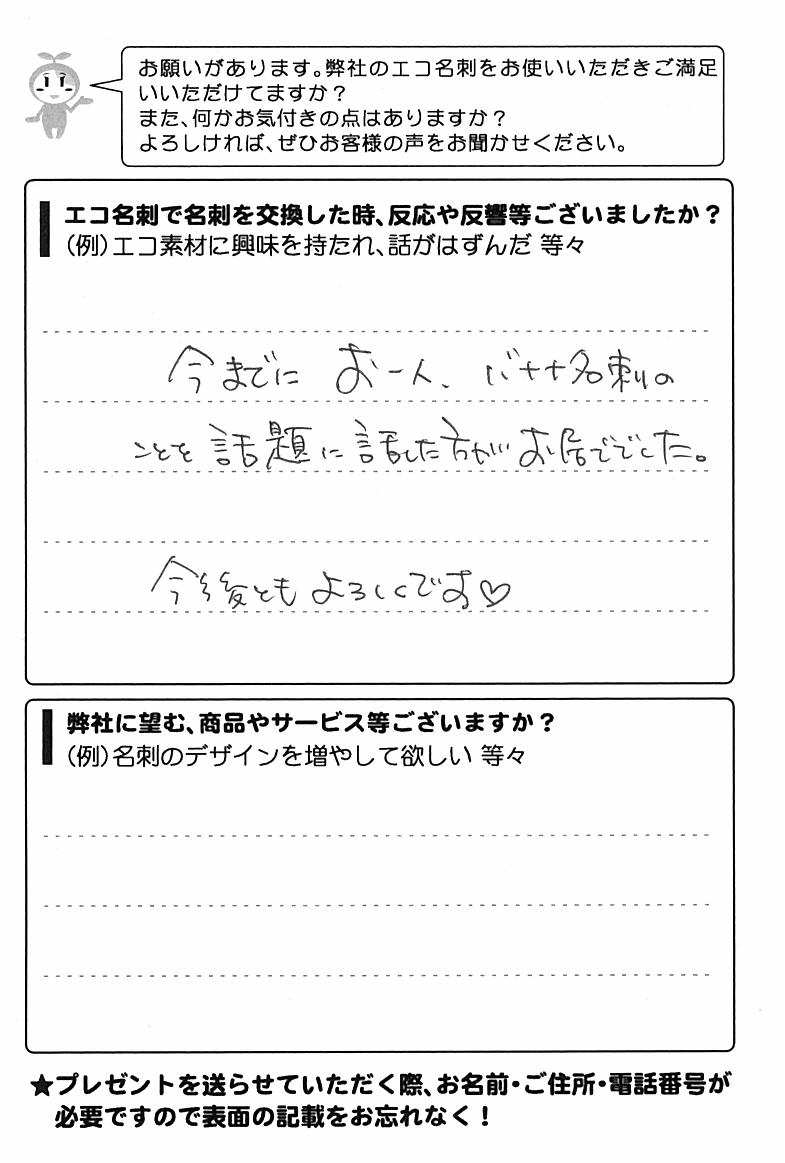 お願いがあります。弊社のエコ名刺をお使いいただきご満足
いいただけてますか？
また、何かお気付きの点はありますか？
よろしければ、ぜひお客様の声をお聞かせください。
エコ名刺で名刺を交換した時、反応や反響等ございましたか？
（例）エコ素材に興味を持たれ、話がはずんだ 等々
今までに お一人、バナナ名刺の
ことを 話題に 話した方が お居ででした。
今後とも よろしくです♡
弊社に望む、商品やサービス等ございますか？
（例）名刺のデザインを増やして欲しい 等々
★プレゼントを送らせていただく際、お名前・ご住所・電話番号が
必要ですので表面の記載をお忘れなく！